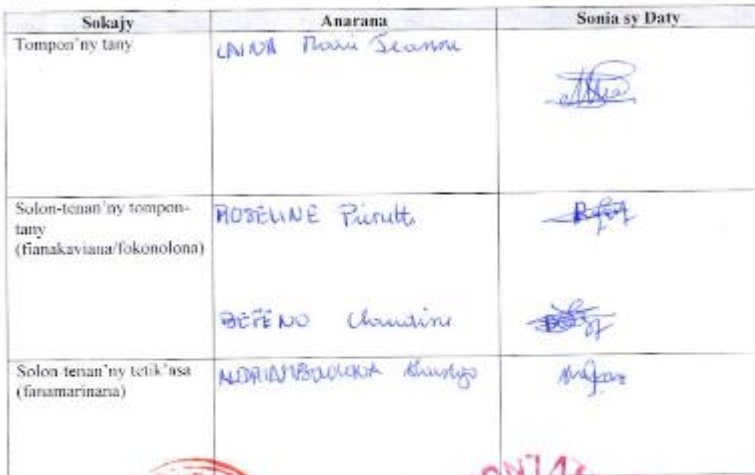 Sokajy Anarana Sonia sy Daty
Tompon'ny tany LAINA Marie Jeanne
Solon-tenan'ny tompon-tany
(fianakaviana/fokonolona)
ROSELINE Pierrette
BEFENO Claudine
Solon-tenan'ny tetik'asa
(fanamarinana)